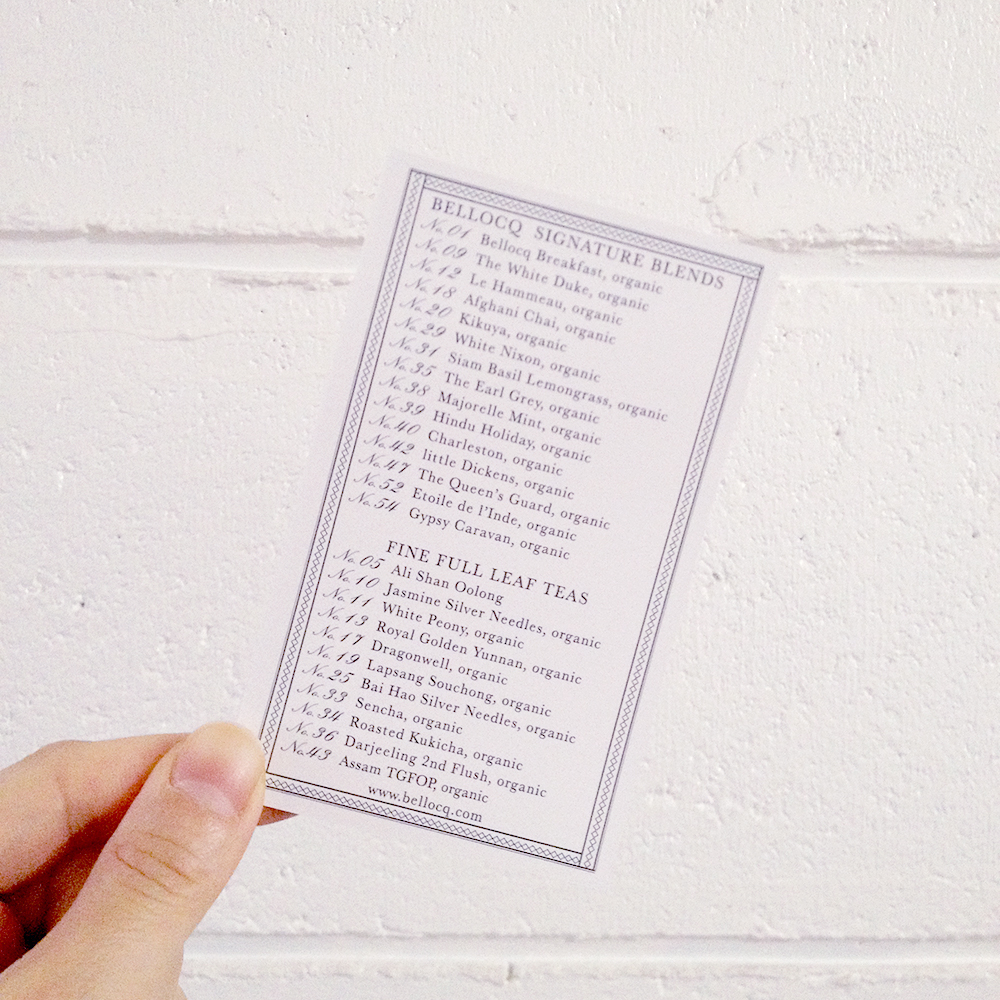 BELLOCQ SIGNATURE BLENDS
No. 01 Bellocq Breakfast, organic
No. 09 The White Duke, organic
No. 12 Le Hammeau, organic
No. 18 Afghani Chai, organic
No. 20 Kikuya, organic
No. 29 White Nixon, organic
No. 31 Siam Basil Lemongrass, organic
No. 35 The Earl Grey, organic
No. 38 Majorelle Mint, organic
No. 39 Hindu Holiday, organic
No. 40 Charleston, organic
No. 42 little Dickens, organic
No. 47 The Queen's Guard, organic
No. 52 Etoile de l'Inde, organic
No. 54 Gypsy Caravan, organic
FINE FULL LEAF TEAS
No. 05 Ali Shan Oolong
No. 10 Jasmine Silver Needles, organic
No. 11 White Peony, organic
No. 13 Royal Golden Yunnan, organic
No. 17 Dragonwell, organic
No. 19 Lapsang Souchong, organic
No. 25 Bai Hao Silver Needles, organic
No. 33 Sencha, organic
No. 34 Roasted Kukicha, organic
No. 36 Darjeeling 2nd Flush, organic
No. 43 Assam TGFOP, organic
www.bellocq.com